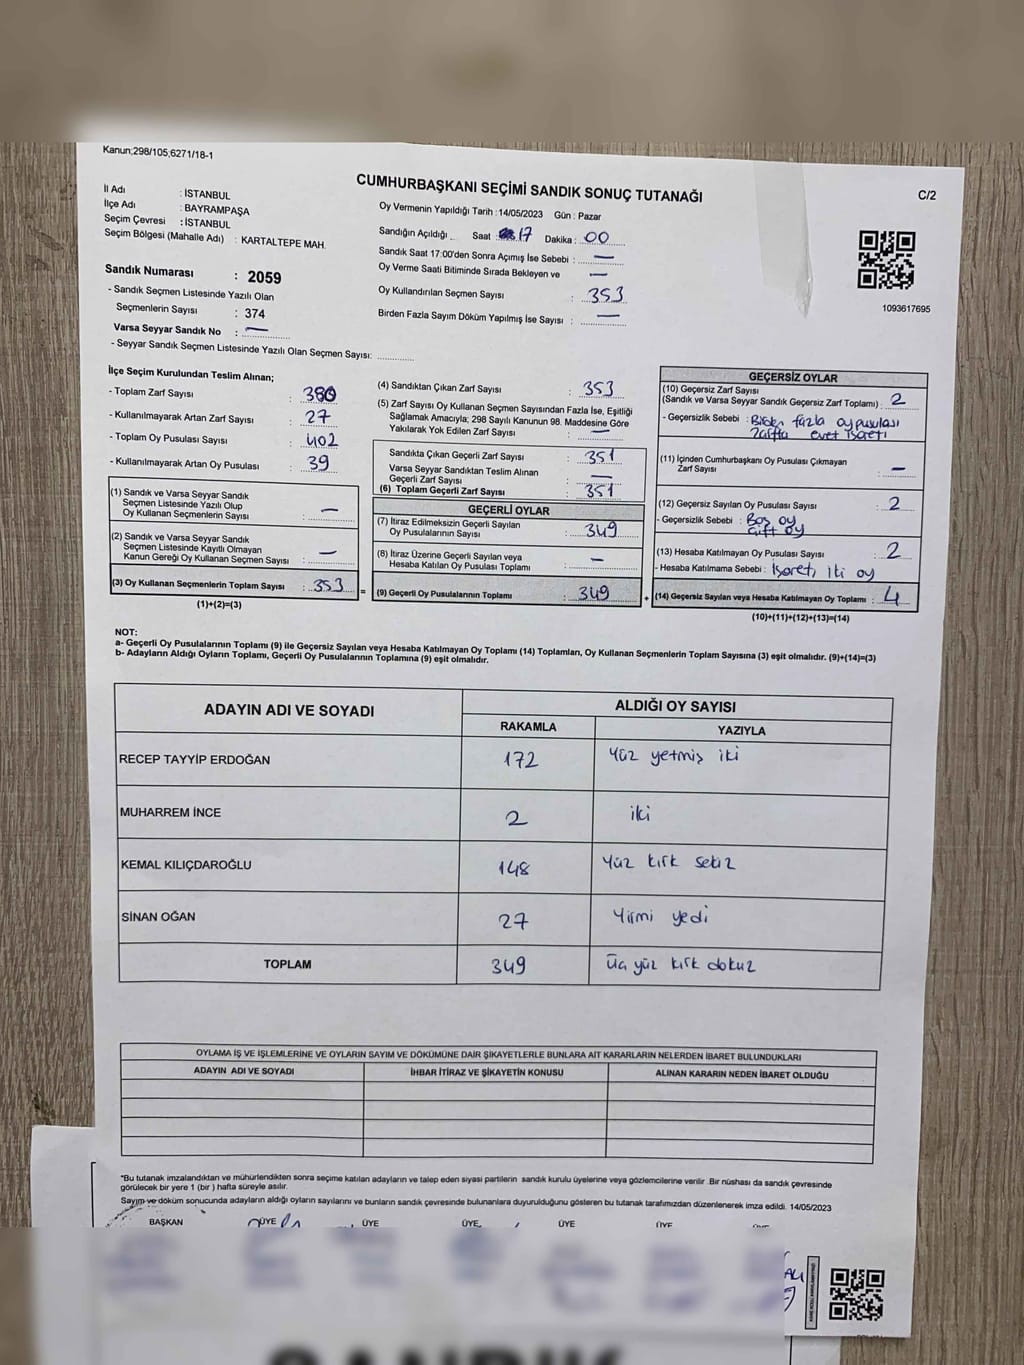 Kanun;298/105;6271/18-1
CUMHURBAŞKANI SEÇİMİ SANDIK SONUÇ TUTANAĞI
C/2
İl Adı : İSTANBUL
İlçe Adı : BAYRAMPAŞA
Seçim Çevresi : İSTANBUL
Seçim Bölgesi (Mahalle Adı) : KARTALTEPE MAH.
Sandık Numarası : 2059
- Sandık Seçmen Listesinde Yazılı Olan
Seçmenlerin Sayısı : 374
Varsa Seyyar Sandık No : —
- Seyyar Sandık Seçmen Listesinde Yazılı Olan Seçmen Sayısı: ............
Oy Vermenin Yapıldığı Tarih :14/05/2023 Gün : Pazar
Sandığın Açıldığı Saat 17 Dakika : 00
Sandık Saat 17:00'den Sonra Açımış İse Sebebi : —
Oy Verme Saati Bitiminde Sırada Bekleyen ve —
Oy Kullandırılan Seçmen Sayısı : 353
Birden Fazla Sayım Döküm Yapılmış İse Sayısı : —
1093617695
İlçe Seçim Kurulundan Teslim Alınan;
- Toplam Zarf Sayısı : 380
- Kullanılmayarak Artan Zarf Sayısı : 27
- Toplam Oy Pusulası Sayısı : 402
- Kullanılmayarak Artan Oy Pusulası : 39
(1) Sandık ve Varsa Seyyar Sandık
Seçmen Listesinde Yazılı Olup
Oy Kullanan Seçmenlerin Sayısı : —
(2) Sandık ve Varsa Seyyar Sandık
Seçmen Listesinde Kayıtlı Olmayan
Kanun Gereği Oy Kullanan Seçmen Sayısı : —
(3) Oy Kullanan Seçmenlerin Toplam Sayısı : 353 =
(1)+(2)=(3)
(4) Sandıktan Çıkan Zarf Sayısı : 353
(5) Zarf Sayısı Oy Kullanan Seçmen Sayısından Fazla İse, Eşitliği
Sağlamak Amacıyla; 298 Sayılı Kanunun 98. Maddesine Göre
Yakılarak Yok Edilen Zarf Sayısı : —
Sandıkta Çıkan Geçerli Zarf Sayısı : 351
Varsa Seyyar Sandıktan Teslim Alınan
Geçerli Zarf Sayısı : —
(6) Toplam Geçerli Zarf Sayısı : 351
GEÇERLİ OYLAR
(7) İtiraz Edilmeksizin Geçerli Sayılan
Oy Pusulalarının Sayısı : 349
(8) İtiraz Üzerine Geçerli Sayılan veya
Hesaba Katılan Oy Pusulası Toplamı : —
(9) Geçerli Oy Pusulalarının Toplamı : 349 +
GEÇERSİZ OYLAR
(10) Geçersiz Zarf Sayısı
(Sandık ve Varsa Seyyar Sandık Geçersiz Zarf Toplamı) : 2
- Geçersizlik Sebebi : Birden fazla oy pusulası
Zarfta evet işareti
(11) İçinden Cumhurbaşkanı Oy Pusulası Çıkmayan
Zarf Sayısı : —
(12) Geçersiz Sayılan Oy Pusulası Sayısı : 2
- Geçersizlik Sebebi : Boş oy
Çift oy
(13) Hesaba Katılmayan Oy Pusulası Sayısı : 2
- Hesaba Katılmama Sebebi : İşareti iki oy
(14) Geçersiz Sayılan veya Hesaba Katılmayan Oy Toplamı : 4
(10)+(11)+(12)+(13)=(14)
NOT:
a- Geçerli Oy Pusulalarının Toplamı (9) ile Geçersiz Sayılan veya Hesaba Katılmayan Oy Toplamı (14) Toplamları, Oy Kullanan Seçmenlerin Toplam Sayısına (3) eşit olmalıdır. (9)+(14)=(3)
b- Adayların Aldığı Oyların Toplamı, Geçerli Oy Pusulalarının Toplamına (9) eşit olmalıdır.
ADAYIN ADI VE SOYADI ALDIĞI OY SAYISI
RAKAMLA YAZIYLA
RECEP TAYYİP ERDOĞAN 172 Yüz yetmiş iki
MUHARREM İNCE 2 iki
KEMAL KILIÇDAROĞLU 148 Yüz kırk sekiz
SİNAN OĞAN 27 Yirmi yedi
TOPLAM 349 Üç yüz kırk dokuz
OYLAMA İŞ VE İŞLEMLERİNE VE OYLARIN SAYIM VE DÖKÜMÜNE DAİR ŞİKAYETLERLE BUNLARA AİT KARARLARIN NELERDEN İBARET BULUNDUKLARI
ADAYIN ADI VE SOYADI İHBAR İTİRAZ VE ŞİKAYETİN KONUSU ALINAN KARARIN NEDEN İBARET OLDUĞU
*Bu tutanak imzalandıktan ve mühürlendikten sonra seçime katılan adayların ve talep eden siyasi partilerin sandık kurulu üyelerine veya gözlemcilerine verilir .Bir nüshası da sandık çevresinde
görülecek bir yere 1 (bir ) hafta süreyle asılır.
Sayım ve döküm sonucunda adayların aldığı oyların sayılarını ve bunların sandık çevresinde bulunanlara duyurulduğunu gösteren bu tutanak tarafımızdan düzenlenerek imza edildi. 14/05/2023
BAŞKAN ÜYE ÜYE ÜYE ÜYE ÜYE